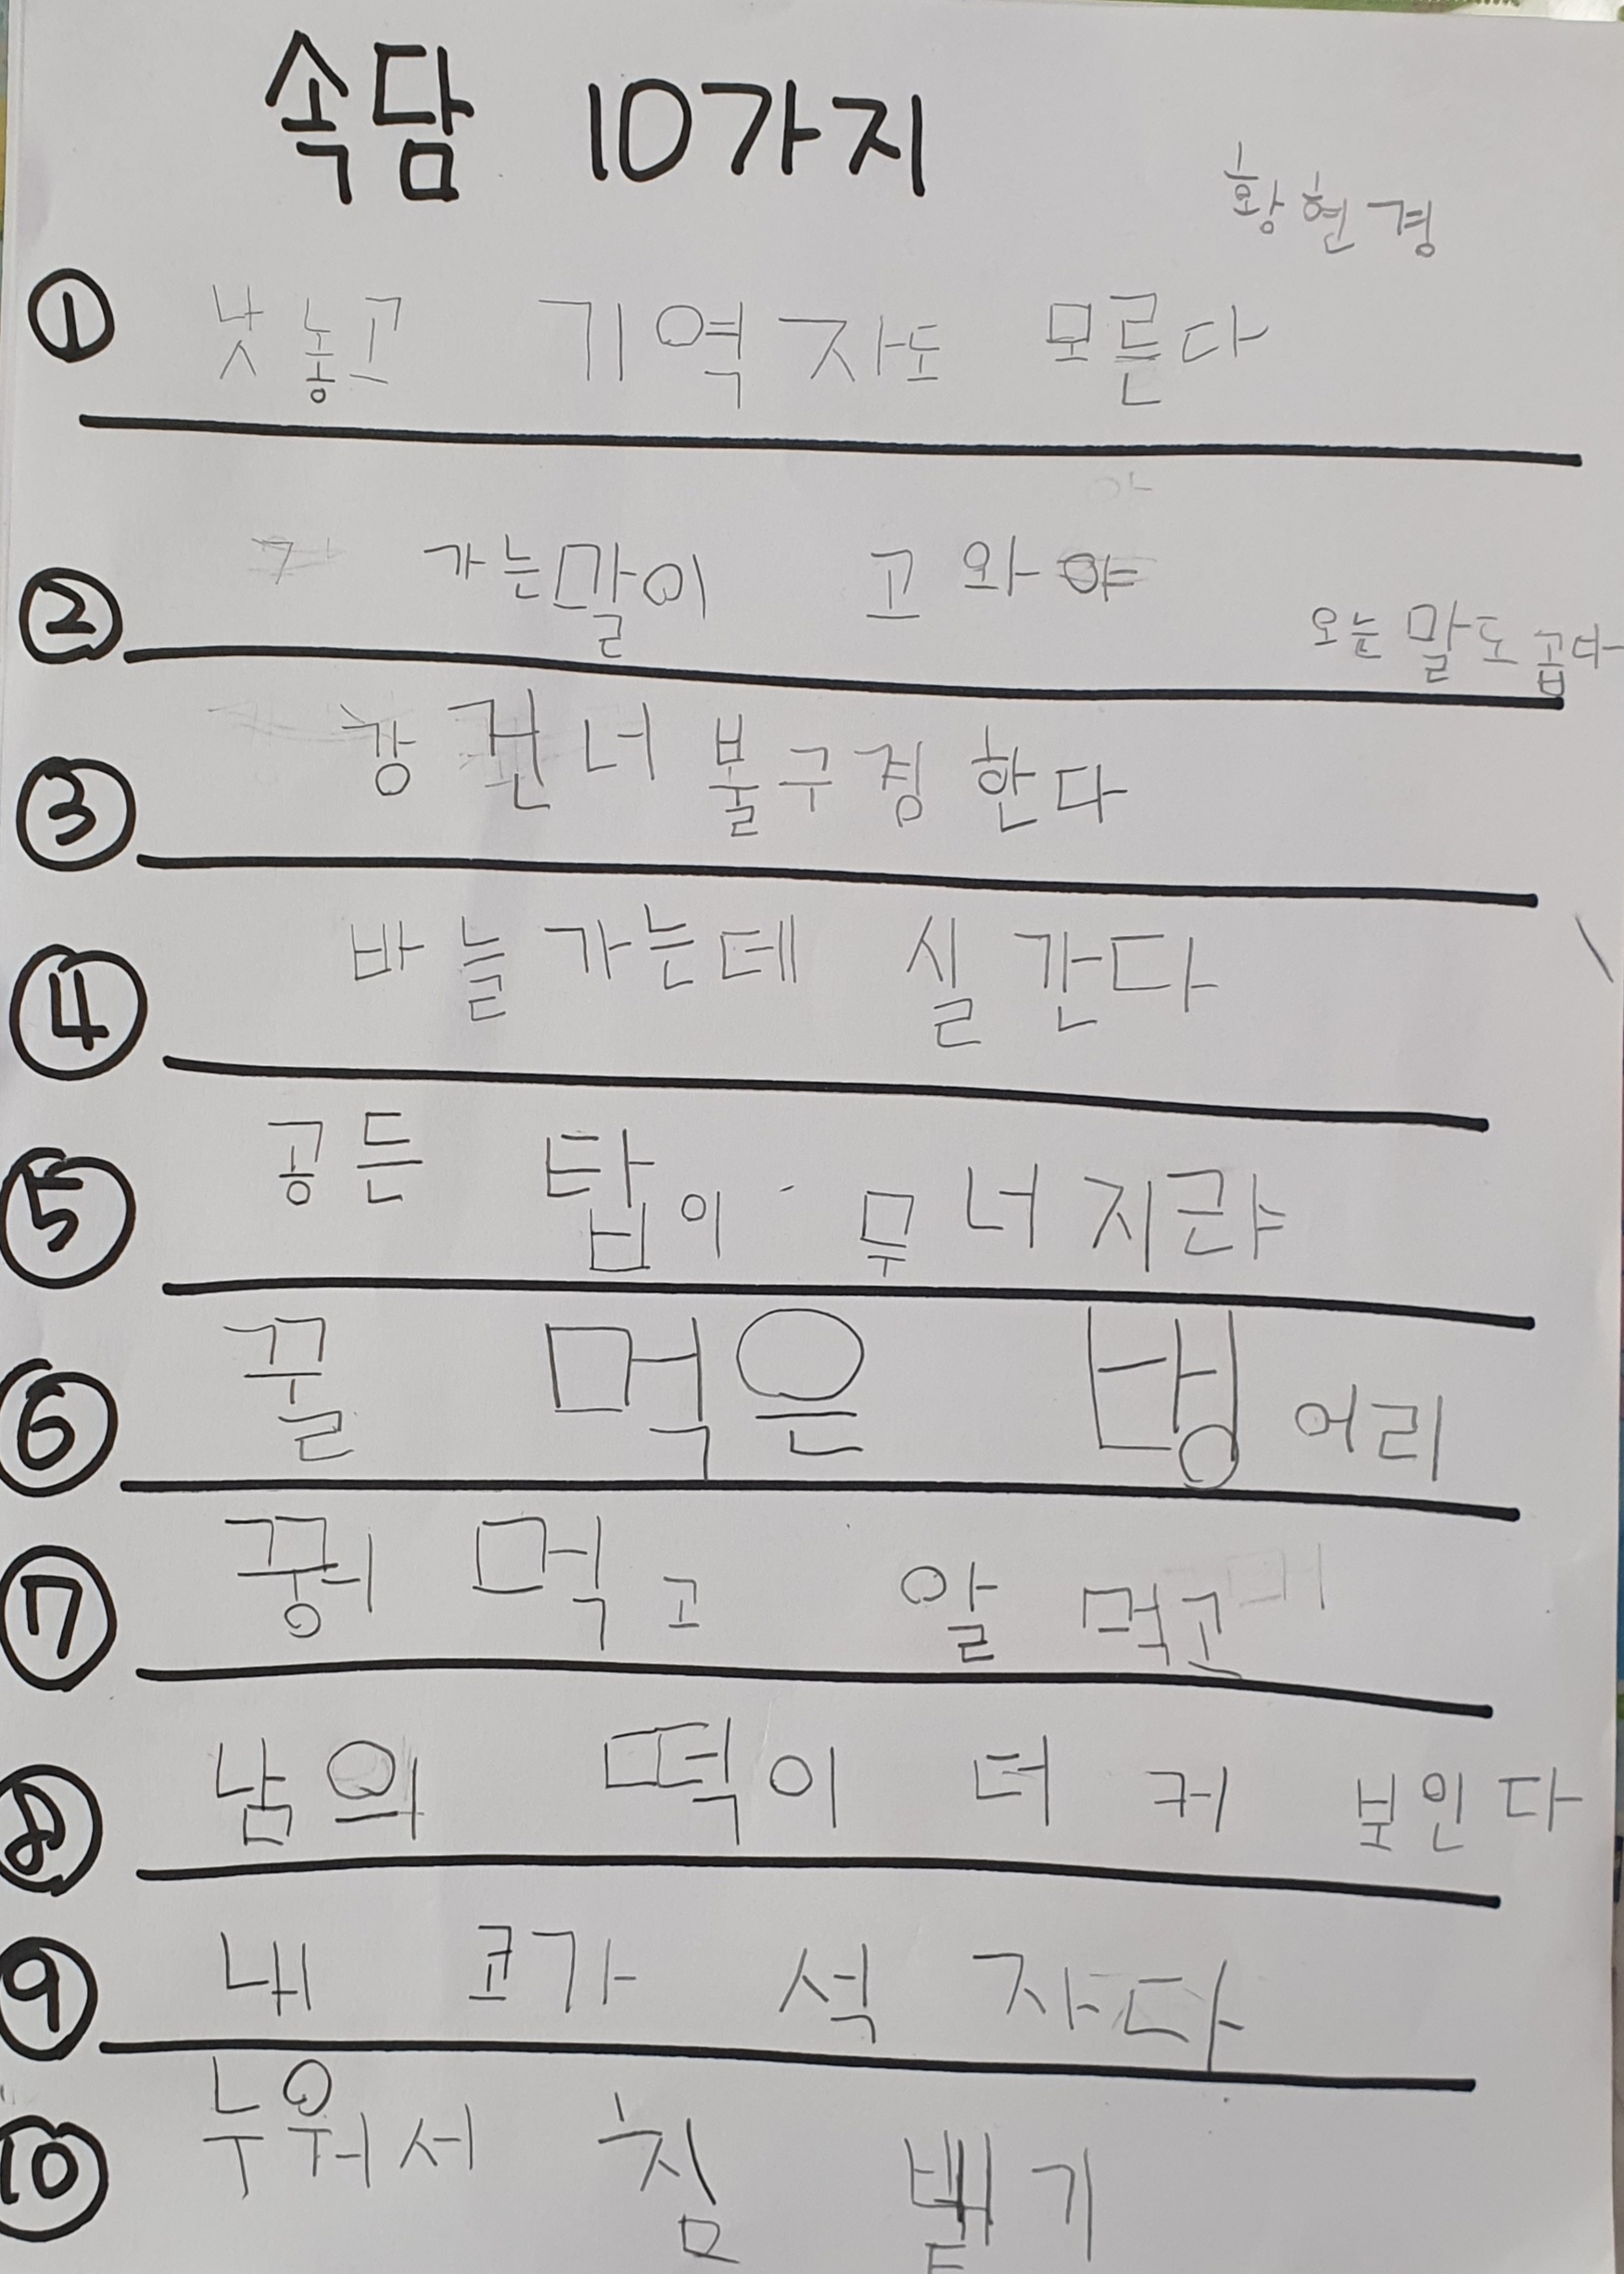 속담 10가지
황현경
① 낫 놓고 기역 자도 모른다
② 가는말이 고와야 오는 말도 곱다
③ 강 건너 불구경 한다
④ 바늘가는데 실 간다
⑤ 공든 탑이 무너지랴
⑥ 꿀 먹은 벙어리
⑦ 먹고 알 먹고
⑧ 남의 떡이 더 커 보인다
⑨ 내 코가 석 자다
⑩ 누워서 침 뱉기